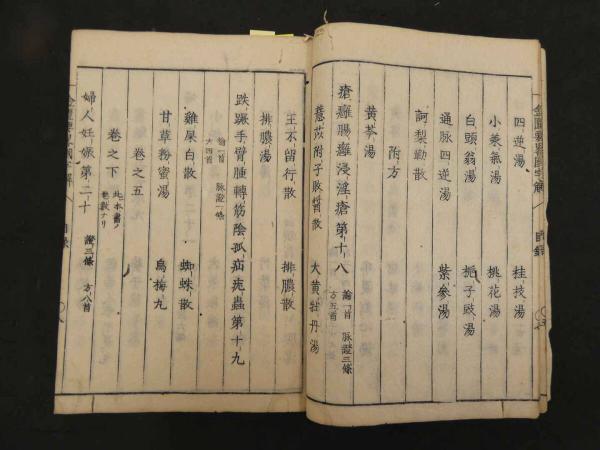 四逆湯　桂枝湯
小兼氣湯　桃花湯
白頭翁湯　梔子豉湯
通脉四逆湯　紫參湯
訶梨勒散
附方
黄芩湯
瘡癰腸癰浸淫瘡第十八　論一首　脉證三條　方五首
薏苡附子敗醤散　大黄牡丹湯
王不留行散　排膿散
排膿湯
趺蹶手臂腫轉筋陰狐疝蚘蟲第十九
論一首　脉證一條
方四首
雞屎白散　蜘蛛散
甘草粉蜜湯　烏梅丸
卷之五
卷之下　此本書ノ卷數ナリ
婦人妊娠第二十　證三條　方八首
目錄